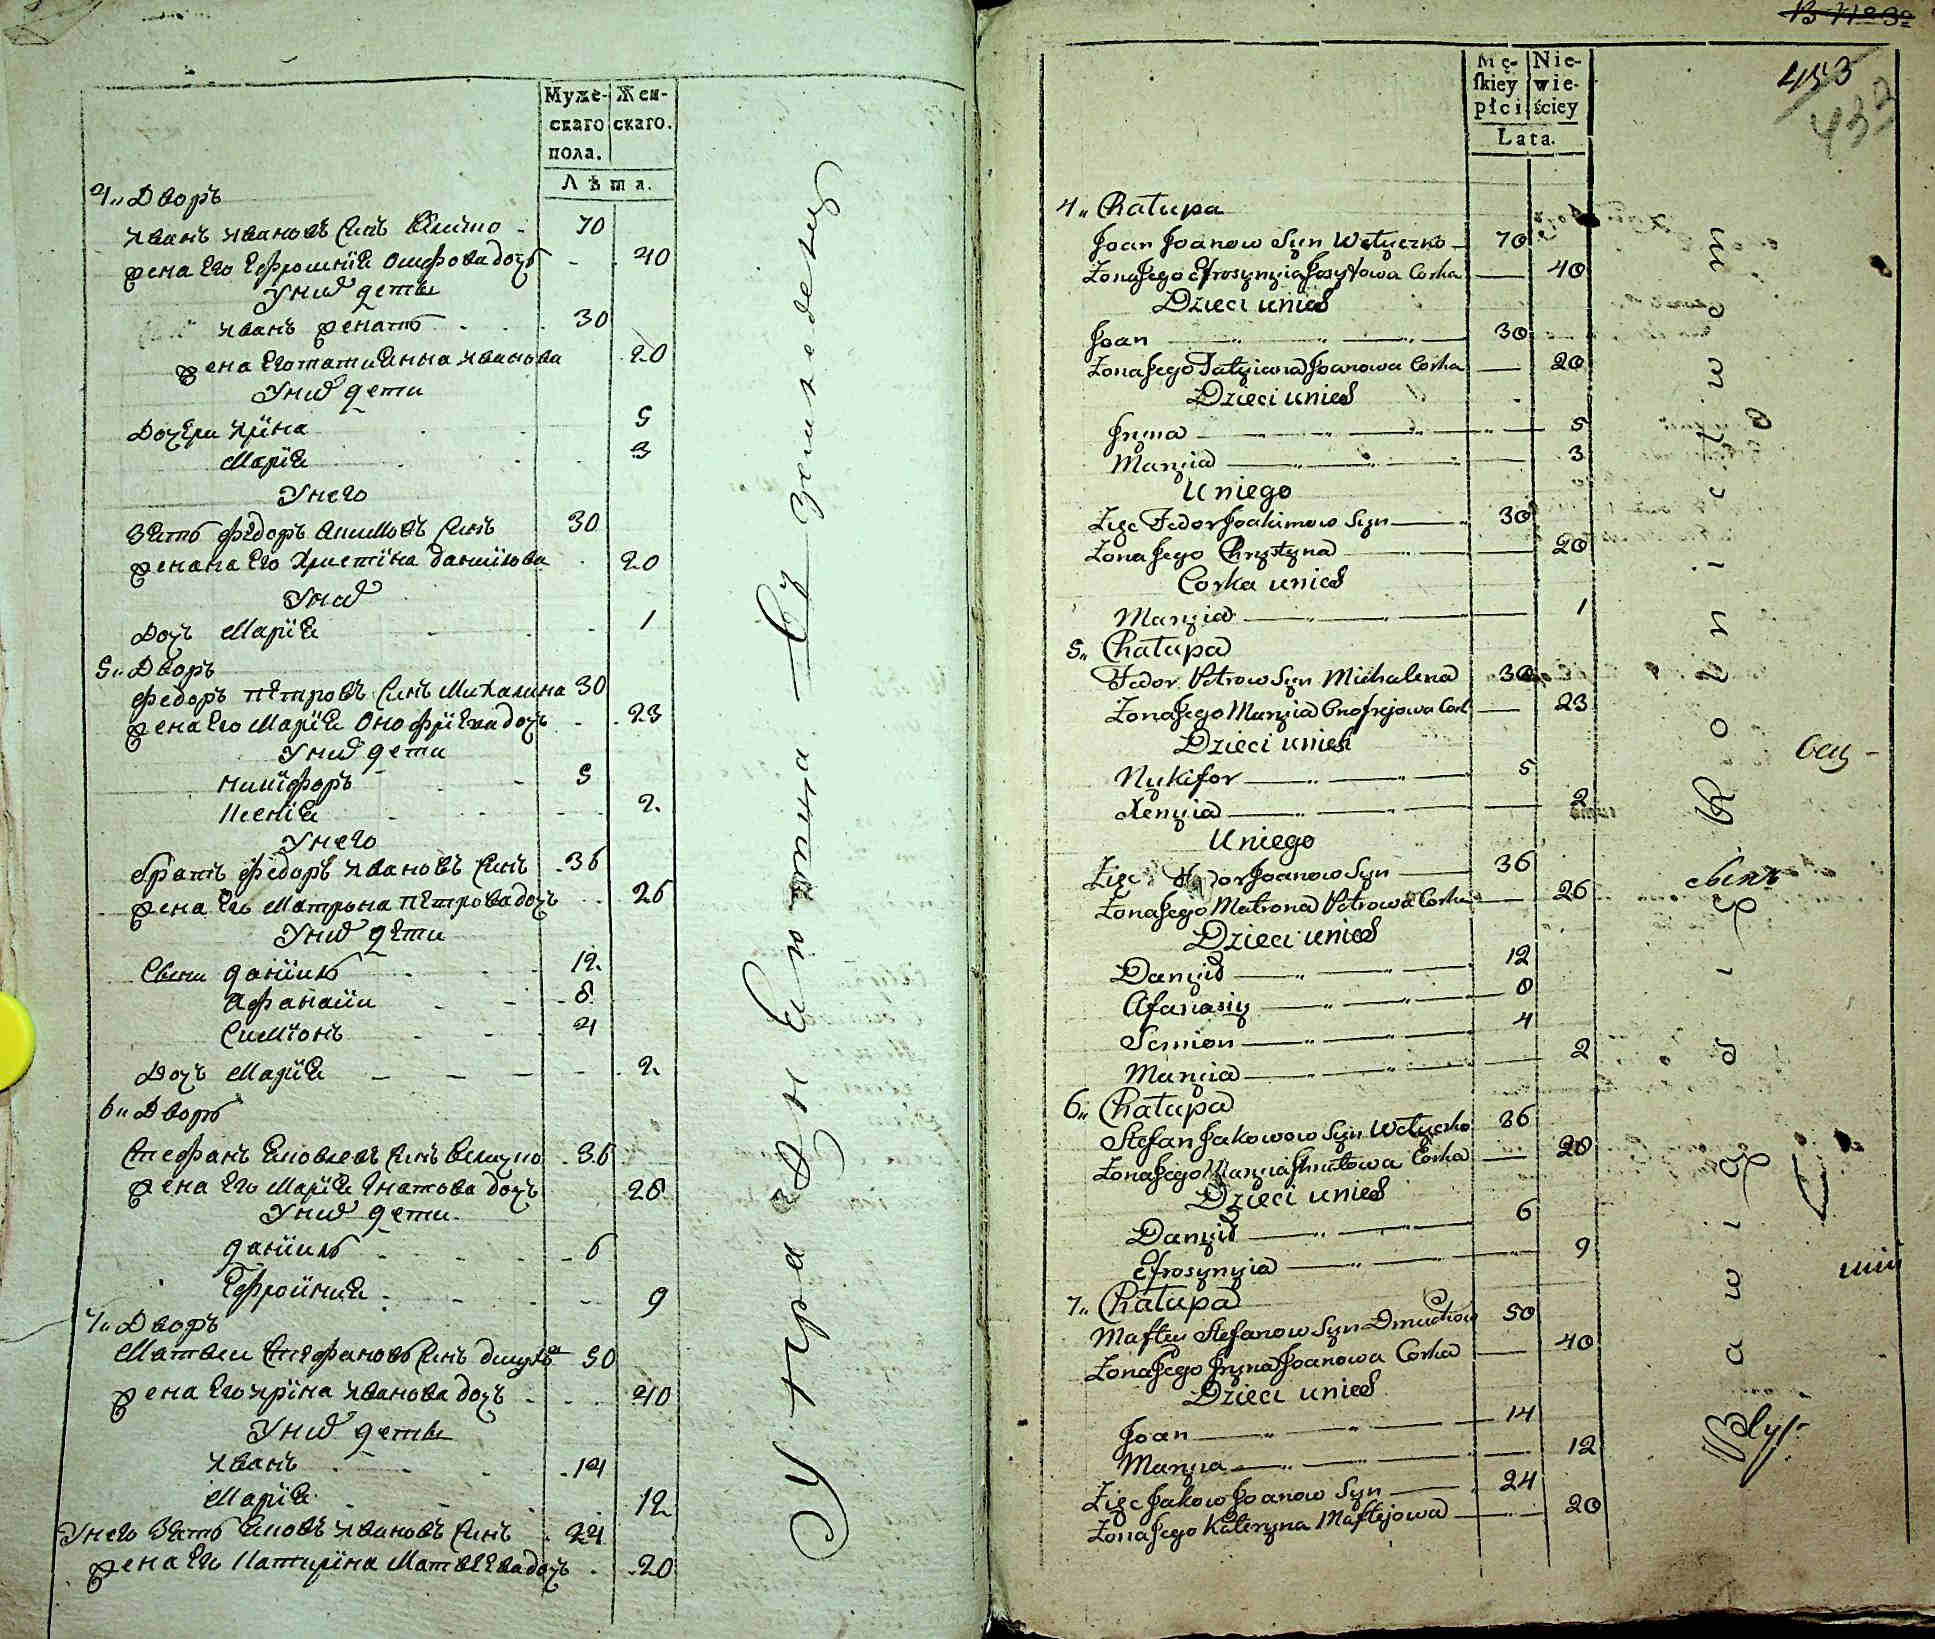 Муже-
скаго
пола.
Жен-
скаго.
Лѣта.
4„ Дворъ
Иванъ Ивановъ Синъ 70
жена Его Ефросинїя дочъ 40
Унихъ дети
Иванъ женатъ 30
жена Его татиянна Иванова 20
Унихъ дети
Дочери Ирїна 5
Марїя 3
Унего
Зять федоръ Синъ 30
жена Его Христїна данїлова 20
Унихъ
Дочъ Марїя 1
5„ Дворъ
федоръ Петровъ Синъ Михалина 30
жена Его Марїя Онофрїева дочъ 23
Унихъ дети
Никїфоръ 5
Ксенїя 2
Унего
братъ федоръ Ивановъ Синъ 36
жена Его Матрона Петрова дочъ 26
Унихъ дети
Сыни данїилъ 12
Афанасїи 8
Симїонъ 4
Дочъ Марїя 2
6„ Дворъ
Стефанъ Яковлевъ Синъ 36
жена Его Марїя Гнатова дочъ 28
Унихъ дети
данїилъ 6
Ефросинїя 9
7„ Дворъ
Матвеи Стефановъ Синъ 50
жена Его Ирїна Иванова дочъ 40
Унихъ дети
Иванъ 14
Марїя 12
Унего Зять Яковъ Ивановъ Синъ 24
жена Его Катерїна Матвеева дочъ 20
453
432
Mę-
skiey
płci
Nie-
wie-
ściey
Lata.
4„ Chałupa
Joan Joanow Syn Wełyczko 70
Zona Jego Efrosynyia Josyfowa Corka 40
Dzieci unich
Joan 30
Zona Jego Tatyiana Joanowa Corka 20
Dzieci unich
Jryna 5
Maryia 3
Uniego
Zięc Fedor Joakimow Syn 30
Zona Jego Chrystyna 20
Corka unich
Maryia 1
5„ Chałupa
Fedor Petrow Syn Michalena 30
Zona Jego Maryia Onofrejowa Cor 23
Dzieci unich
Nykifor 5
Xenyia 2
Uniego
Zięc Joanow Syn 36
Zona Jego Matrona Petrowa Corka 26
Dzieci unich
Danyił 12
Afanasiy 8
Semion 4
Maryia 2
6„ Chałupa
Stefan Jakowow Syn Wełyczko 36
Zona Jego Maryia Jhnatowa Corka 28
Dzieci unich
Danyił 6
Efrosynyia 9
7„ Chałupa
Maftei Stefanow Syn 50
Zona Jego Jryna Joanowa Corka 40
Dzieci unich
Joan 14
Maryia 12
Zięc Jakow Joanow Syn 24
Zona Jego Kateryna Maftejowa 20